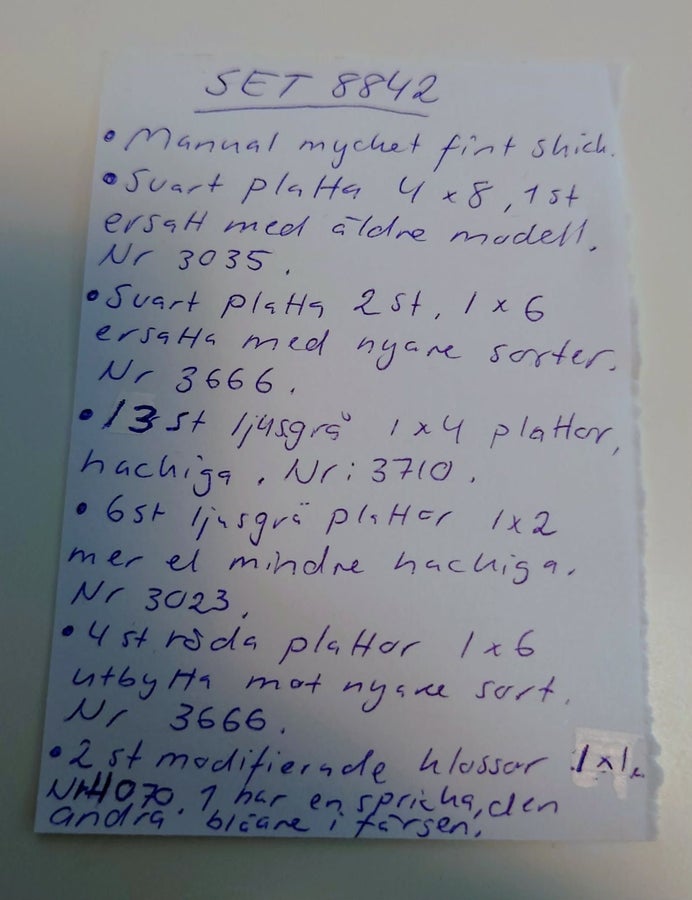 SET 8842
• Manual mycket fint skick.
• Svart platta 4 x 8, 1 st
ersatt med äldre modell.
Nr 3035.
• Svart platta 2 st. 1 x 6
ersatta med nyare sorter.
Nr 3666.
• 13 st ljusgrå 1 x 4 plattor,
hackiga. Nr: 3710.
• 6 st ljusgrå plattor 1 x 2
mer el mindre hackiga.
Nr 3023.
• 4 st röda plattor 1 x 6
utbytta mot nyare sort.
Nr 3666.
• 2 st modifierade klossar 1x1.
Nr 4070. 1 har en spricka, den
andra blåare i färgen.